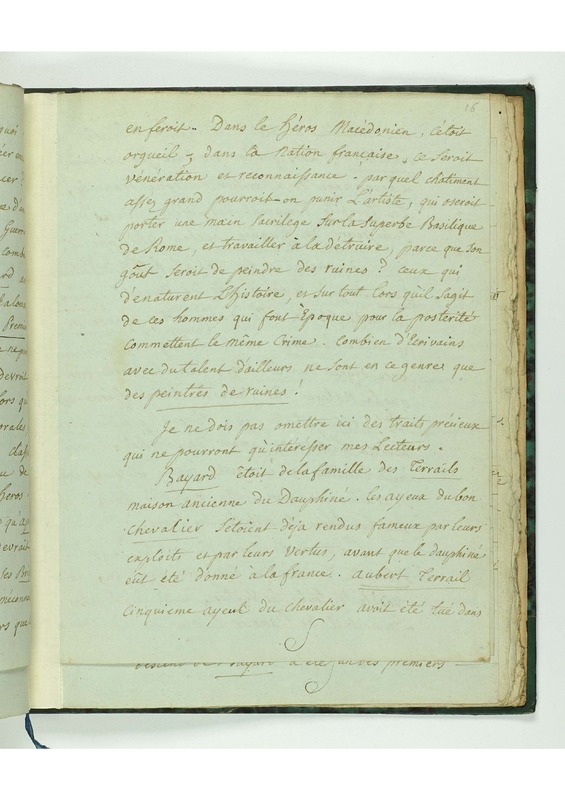 16
en feroit. Dans le héros Macédonien, c'étoit
orgueil; dans la Nation française, ce seroit
vénération et reconnaissance. par quel chatiment
assez grand pourroit-on punir L'artiste, qui oseroit
porter une main sacrilege sur la superbe Basilique
de Rome, et travailler à la détruire, parce que son
goût seroit de peindre des ruines? ceux qui
d'enaturent L'histoire, et sur tout lors qu'il s'agit
de ces hommes qui font Époque pour la postérité
commettent le même crime. combien d'Ecrivains
avec du talent d'ailleurs ne sont en ce genre que
des peintres de ruines!
Je ne dois pas omettre ici des traits précieux
qui ne pourront qu'intéresser mes Lecteurs.
Bayard étoit de la famille des Terrails
maison ancienne du Dauphiné. les ayeux du bon
chevalier s'etoient déja rendus fameux par leurs
exploits et par leurs vertus, avant que le dauphiné
eût été donné à la france. Aubert Terrail
cinquieme ayeul du chevalier avoit été tué dans